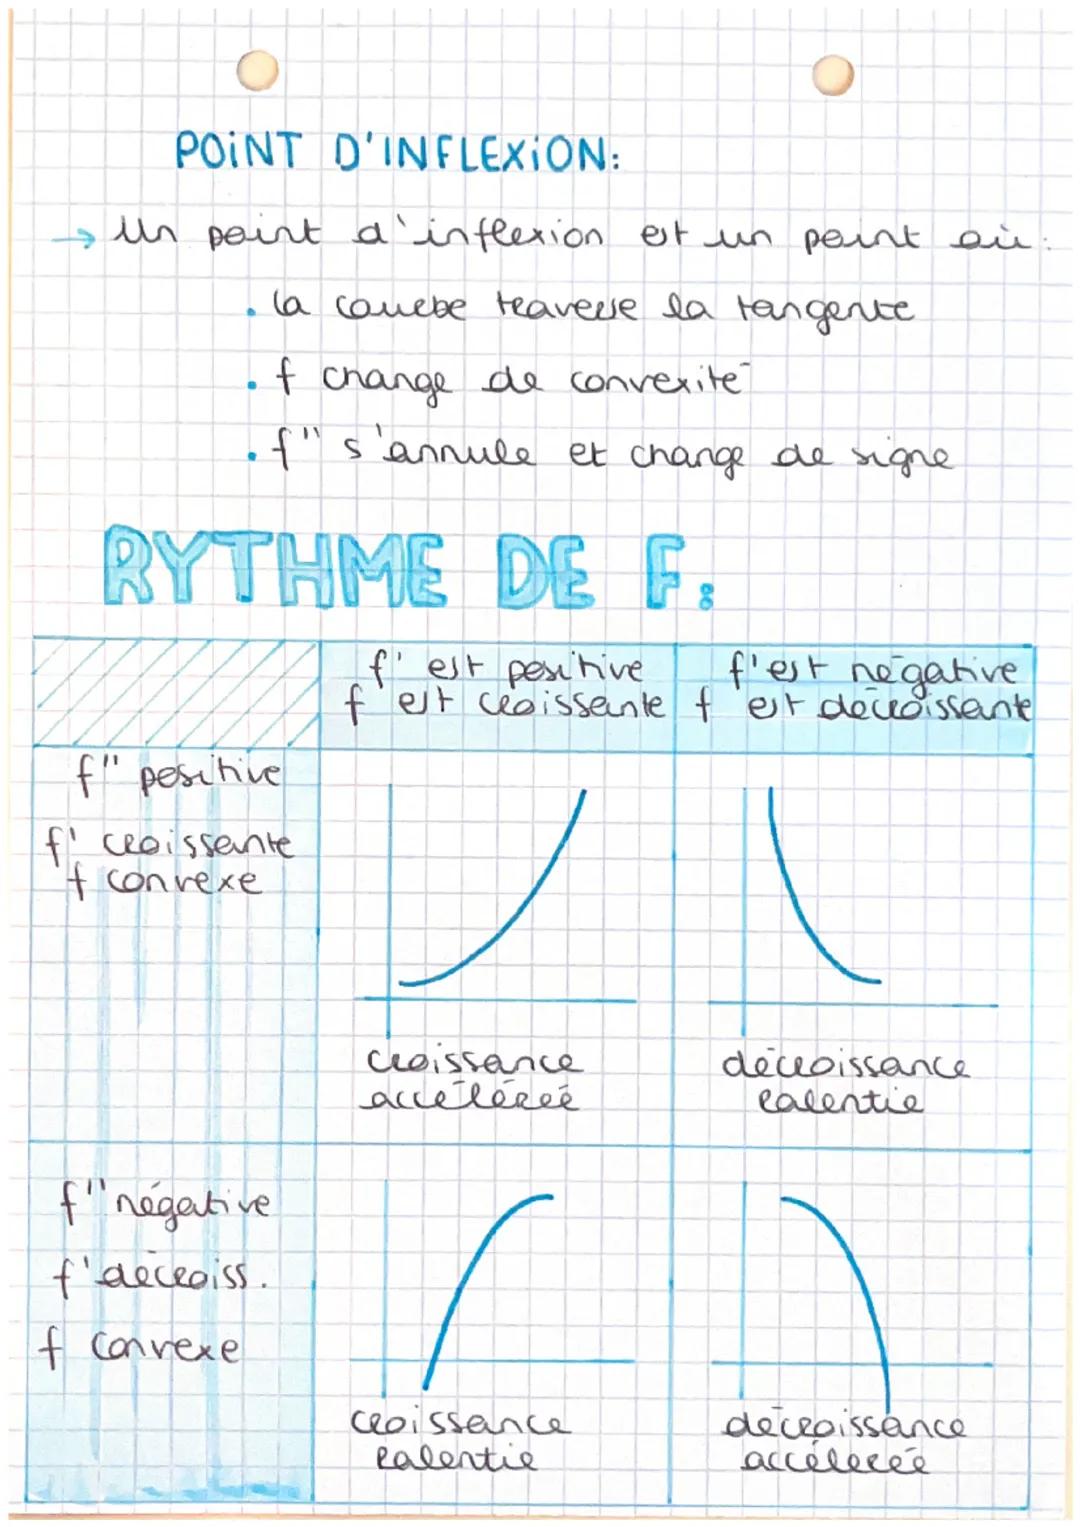 POINT D'INFLEXION:
→ Un point d'inflexion est un point où:
. la courbe traverse la tangente
. f change de convexité
. f" s'annule et change de signe
RYTHME DE F:
f' est positive
f est croissante
f' est négative
f est décroissante
f" positive
f' croissante
f convexe
croissance
accélérée
décroissance
ralentie
f" négative
f' décroiss.
f convexe
croissance
ralentie
décroissance
accélérée